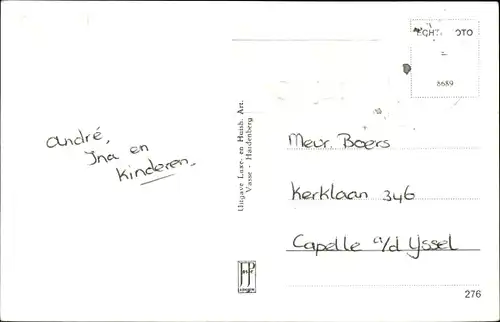 André,
Ina en
kinderen.
Uitgave Luxe- en Huish. Art.
Vasse - Hardenberg
ECHT. OTO
8689
Meur. Boers
Kerklaan 346
Capelle a/d IJssel
276